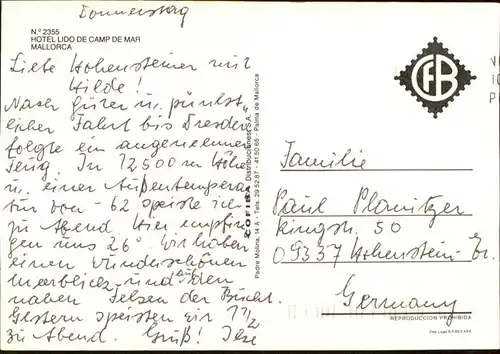 Donnerstag
N.º 2355
HOTEL LIDO DE CAMP DE MAR
MALLORCA
Liebe Hohensteiner mit
Hilde!
Nach guter u. pünkt-
licher Fahrt bis Dresden
folgte ein angenehmer
Flug. In 12500 m Höhe
u. einer Außentempera
tur von -62 speiste ich
zu Abend. Hier empfin
gen uns 26°. Wir haben
einen wunderschönen
Meerblick und auf den
nahen Felsen der Bucht.
Gestern speisten wir 1/2
zu Abend. Gruß! Ilse
COFIBA Distribuciones, S.A.
Padre Molina, 14 A - Tels. 29 52 87 - 41 50 65 - Palma de Mallorca
CFB
Familie
Paul Planitzer
Ringstr. 50
09337 Hohenstein-Er.
Germany
REPRODUCCION PROHIBIDA